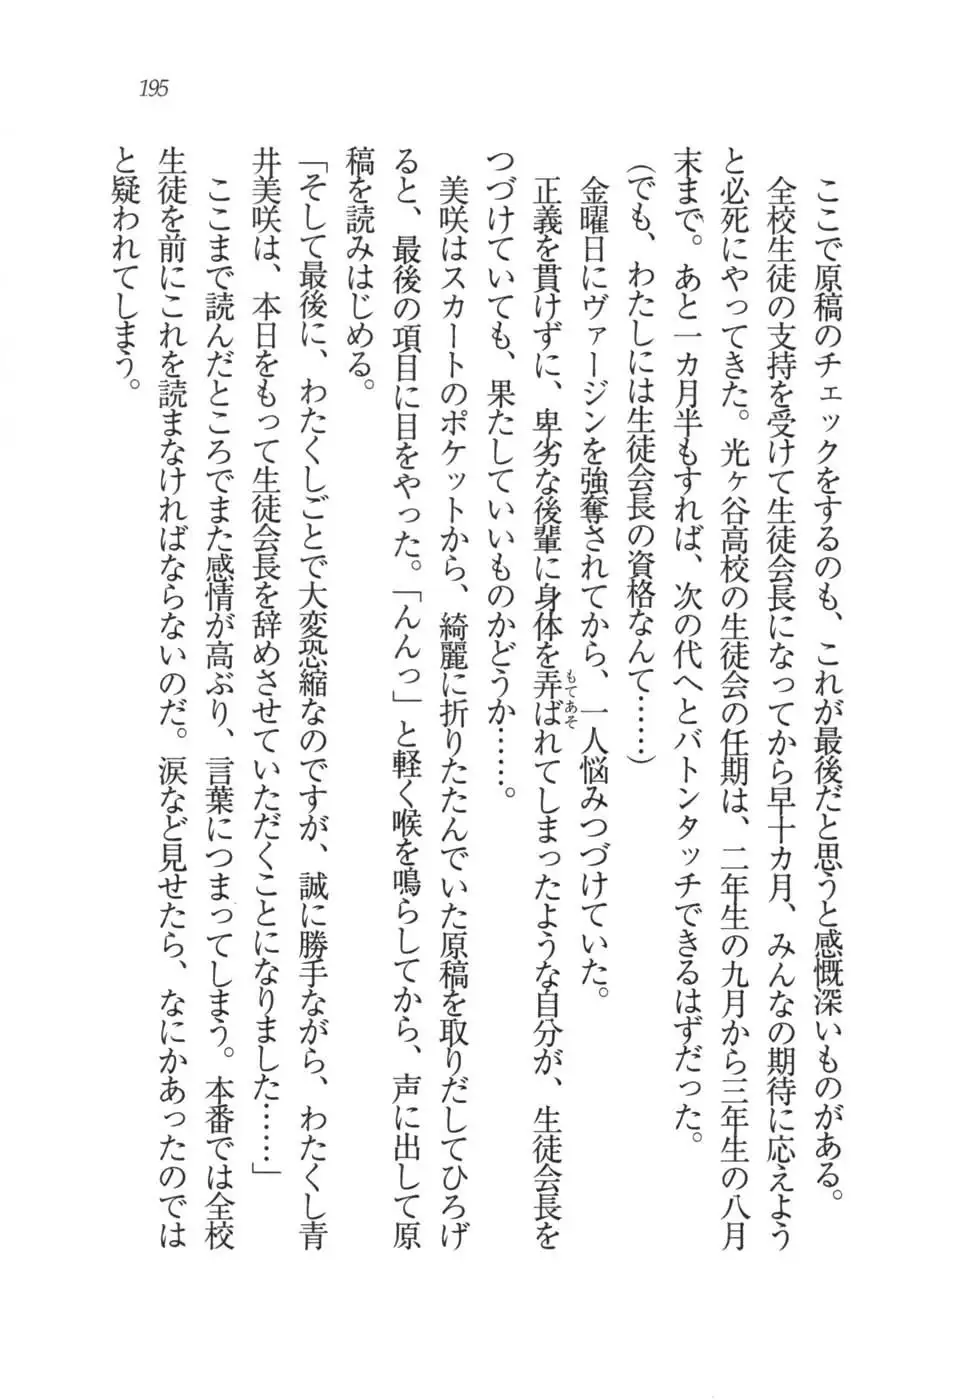 195
ここで原稿のチェックをするのも、これが最後だと思うと感慨深いものがある。
全校生徒の支持を受けて生徒会長になってから早十カ月、みんなの期待に応えよう
と必死にやってきた。光ヶ谷高校の生徒会の任期は、二年生の九月から三年生の八月
末まで。あと一カ月半もすれば、次の代へとバトンタッチできるはずだった。
(でも、わたしには生徒会長の資格なんて……)
金曜日にヴァージンを強奪されてから、一人悩みつづけていた。
正義を貫けずに、卑劣な後輩に身体を弄もてあそばれてしまったような自分が、生徒会長を
つづけていても、果たしていいものかどうか……。
美咲はスカートのポケットから、綺麗に折りたたんでいた原稿を取りだしてひろげ
ると、最後の項目に目をやった。「んんっ」と軽く喉を鳴らしてから、声に出して原
稿を読みはじめる。
「そして最後に、わたくしごとで大変恐縮なのですが、誠に勝手ながら、わたくし青
井美咲は、本日をもって生徒会長を辞めさせていただくことになりました……」
ここまで読んだところでまた感情が高ぶり、言葉につまってしまう。本番では全校
生徒を前にこれを読まなければならないのだ。涙など見せたら、なにかあったのでは
と疑われてしまう。